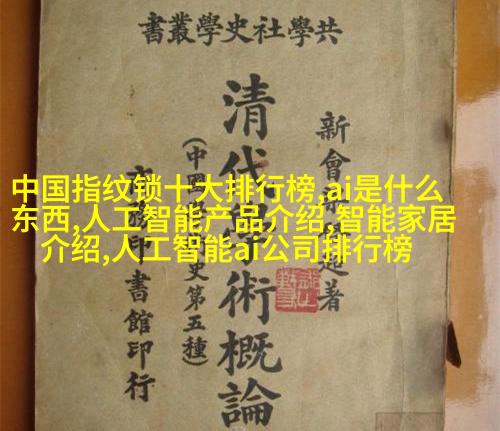 共學社史學叢書
新會 超著
清代 術概論
(中國 史第五種)
書館印行
中国指纹锁十大排行榜,ai是什么
东西,人工智能产品介绍,智能家居
介绍,人工智能ai公司排行榜